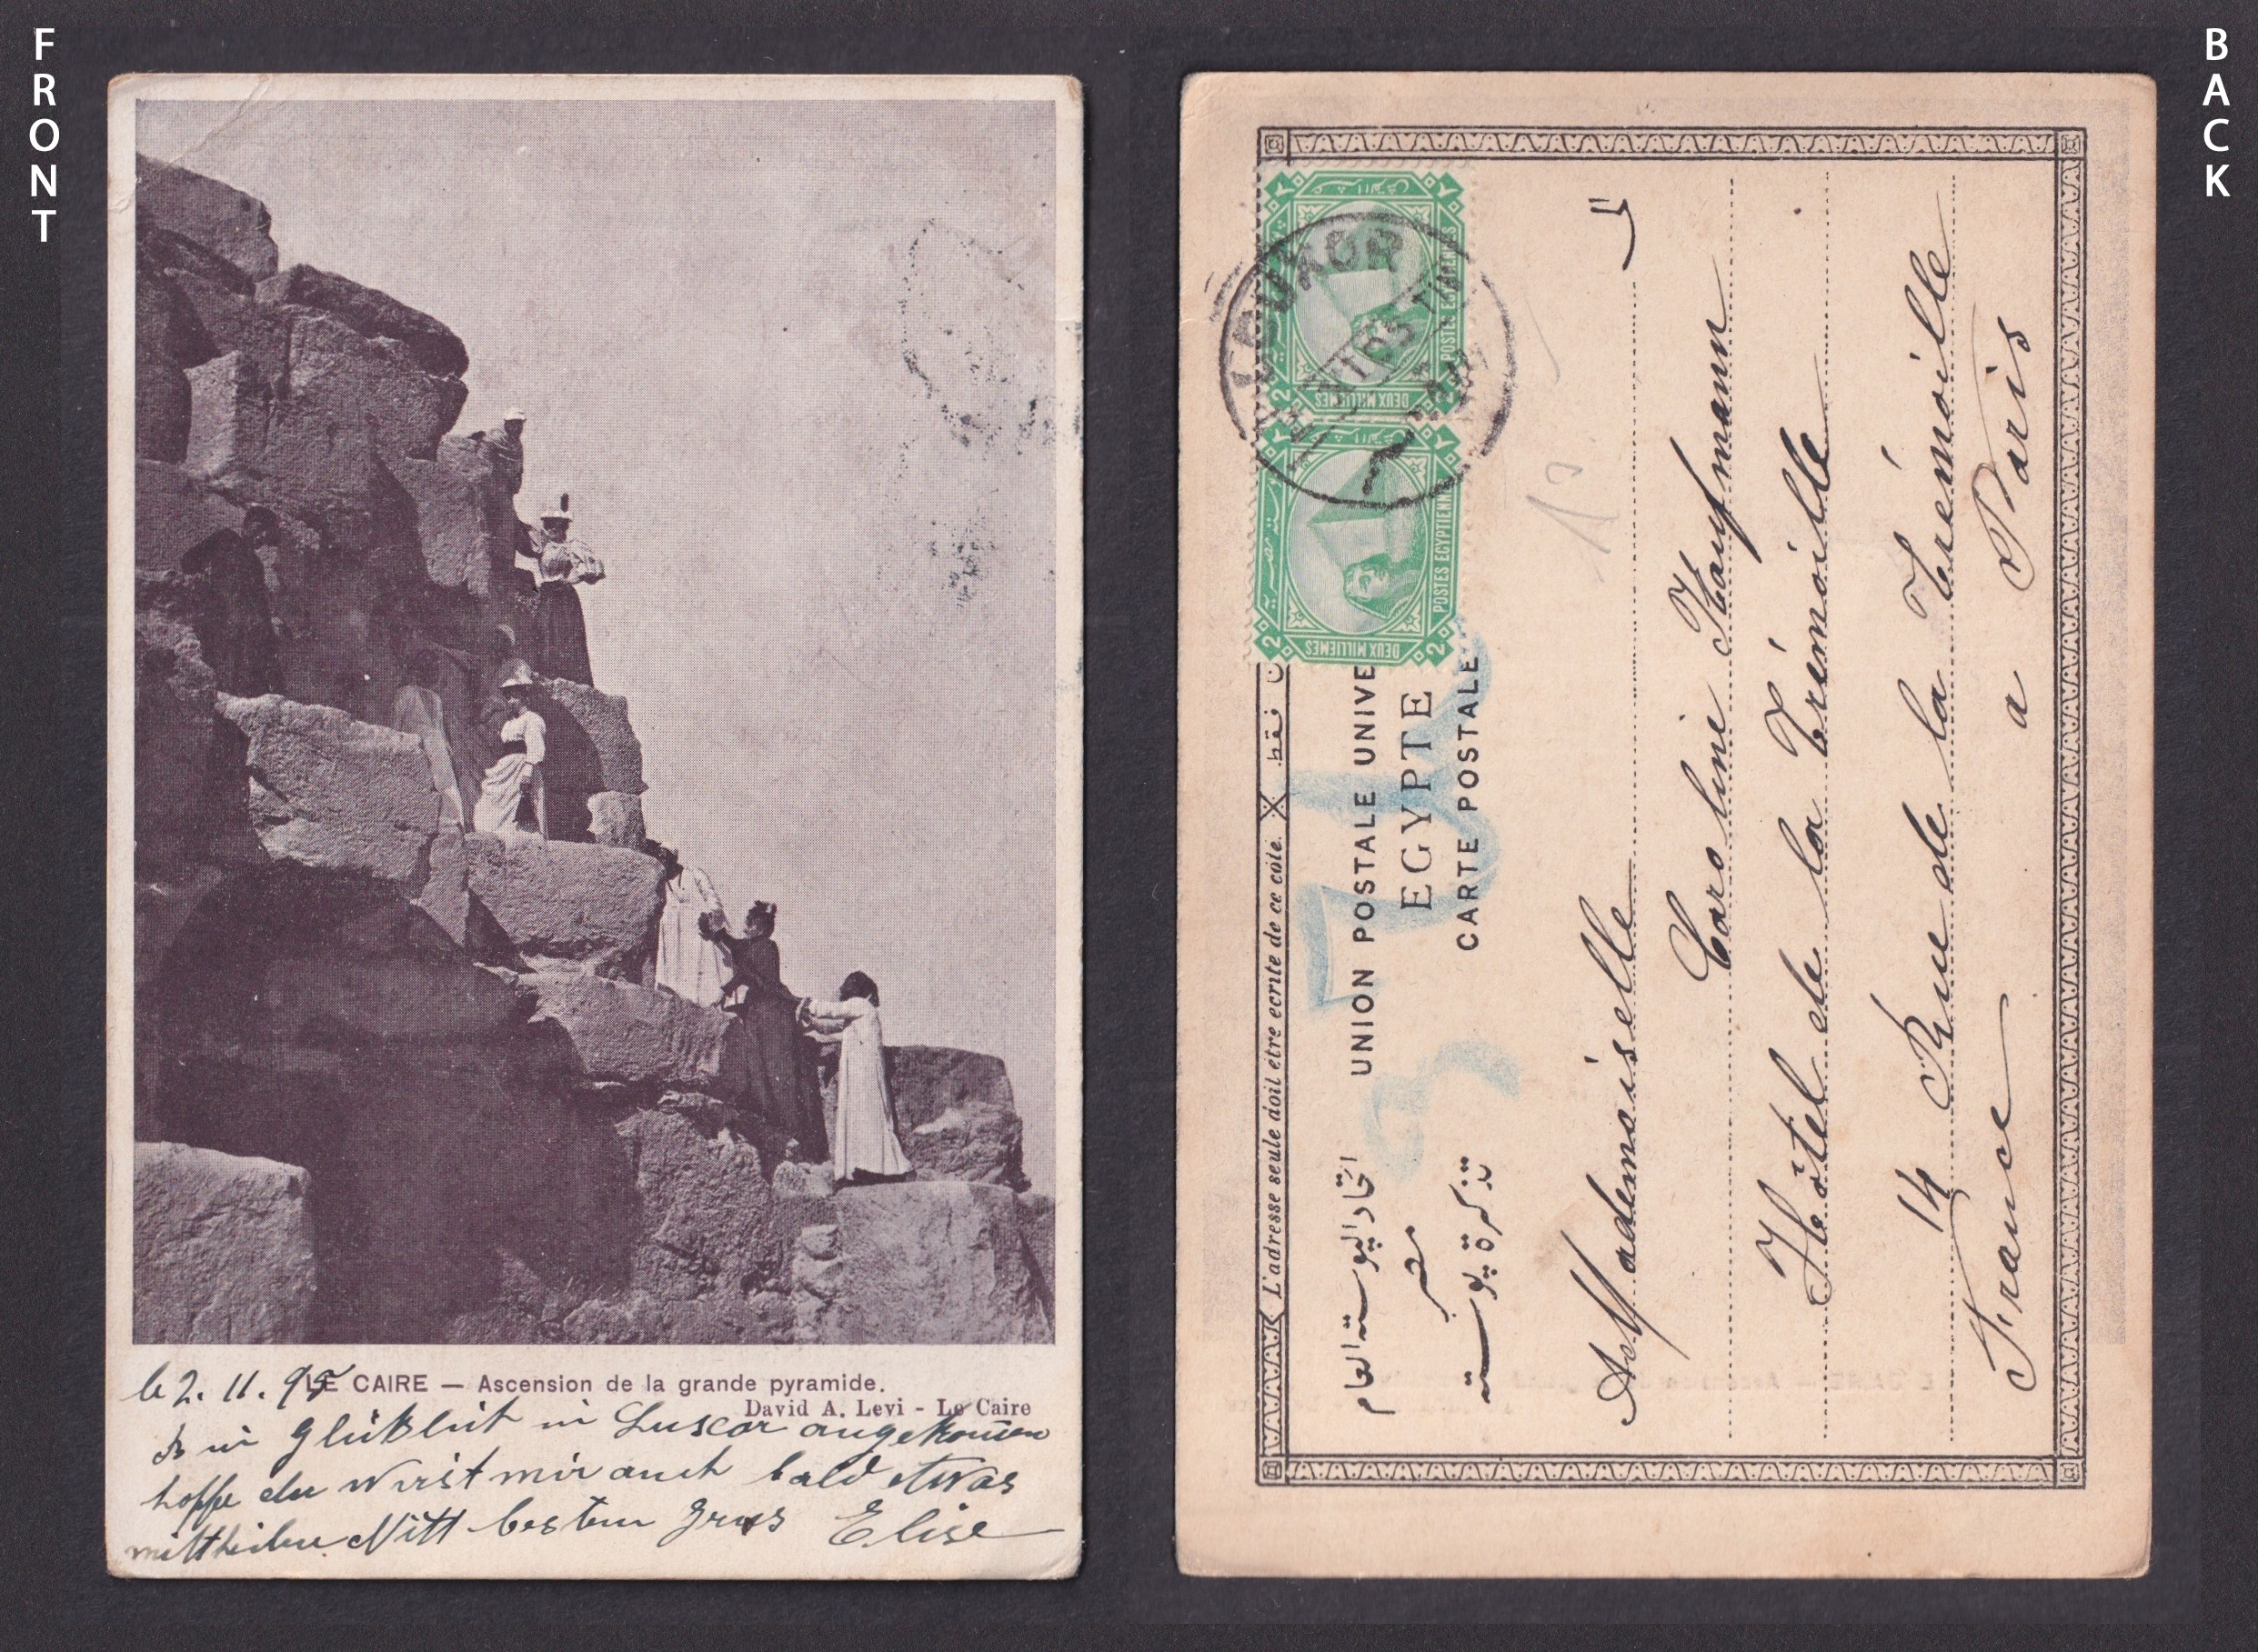 FRONT
BACK
le 2. 11. 99
LE CAIRE — Ascension de la grande pyramide.
David A. Levi - Le Caire
glüklich in Luxor angekommen
hoffe du wirst mir auch bald etwas
mittheilen Mitt besten grus Elise
L'adresse seule doit être écrite de ce côté.
اتحاد البوسته العام UNION POSTALE UNIVE
مصر EGYPTE
تذكرة بوسته CARTE POSTALE
POSTES EGYPTIENNES
DEUX MILLIEMES
2
2
POSTES EGYPTIENNES
DEUX MILLIEMES
2
2
LOUXOR
Mademoiselle
Caroline Kaufmann
Hôtel de la Trémoille
14 Rue de la Trémoille
France a Paris